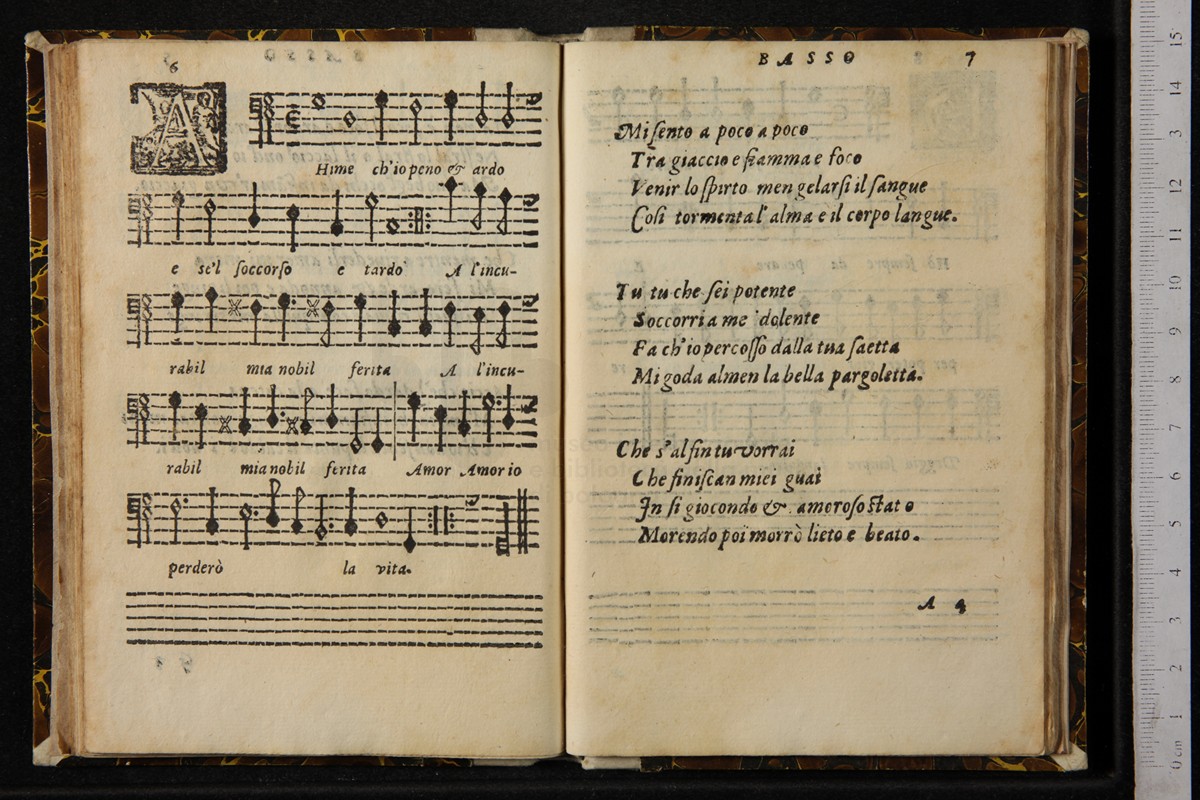 6
AHime ch'io peno & ardo
e se'l ſoccorſo e tardo A l'incu-
rabil mia nobil ferita A l'incu-
rabil mia nobil ferita Amor Amor io
perderò la vita.
BASSO 7
Mi ſento a poco a poco
Tra giaccio e fiamma e foco
Venir lo ſpirto men gelarſi il ſangue
Coſi tormenta l'alma e il corpo langue.
Tu tu che ſei potente
Soccorri a me dolente
Fa ch'io percoſſo dalla tua ſaetta
Mi goda almen la bella pargoletta.
Che s'al fin tu vorrai
Che finiſcan miei guai
In ſi giocondo & amoroſo ſtato
Morendo poi morrò lieto e beato.
A 4
0 cm 1 2 3 4 5 6 7 8 9 10 11 12 13 14 15